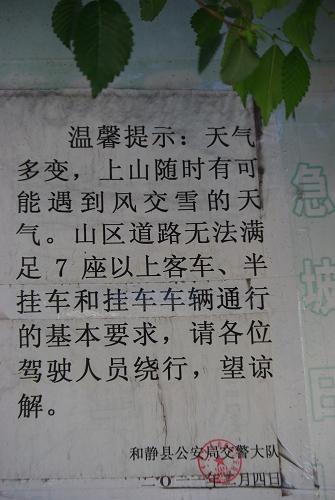 温馨提示：天气
多变，上山随时有可
能遇到风交雪的天
气。山区道路无法满
足 7 座以上客车、半
挂车和挂车车辆通行
的基本要求，请各位
驾驶人员绕行，望谅
解。
和静县公安局交警大队
月四日
急
城